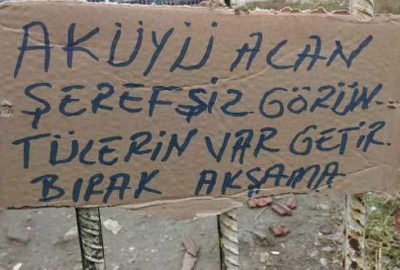 AKÜYÜ ALAN
ŞEREFŞİZ GÖRÜN-
TÜLERİN VAR GETİR.
BIRAK AKŞAMA